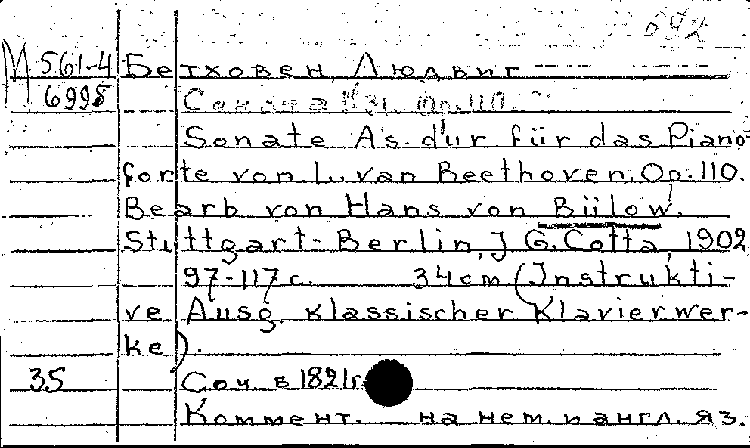 692
М 561-4 Бетховен, Людвиг
6998 Соната №31. Op.110.
Sonate As dur für das Piano-
forte von L. van Beethoven. Op. 110.
Bearb von Hans von Bülow.
Stuttgart-Berlin, J. G. Cotta, 1902
97-117 с. 34 cm (Instrukti-
ve Ausg. klassischer Klavierwer-
ke).
35 Соч. в 1821г.
Коммент. на нем. и англ. яз.